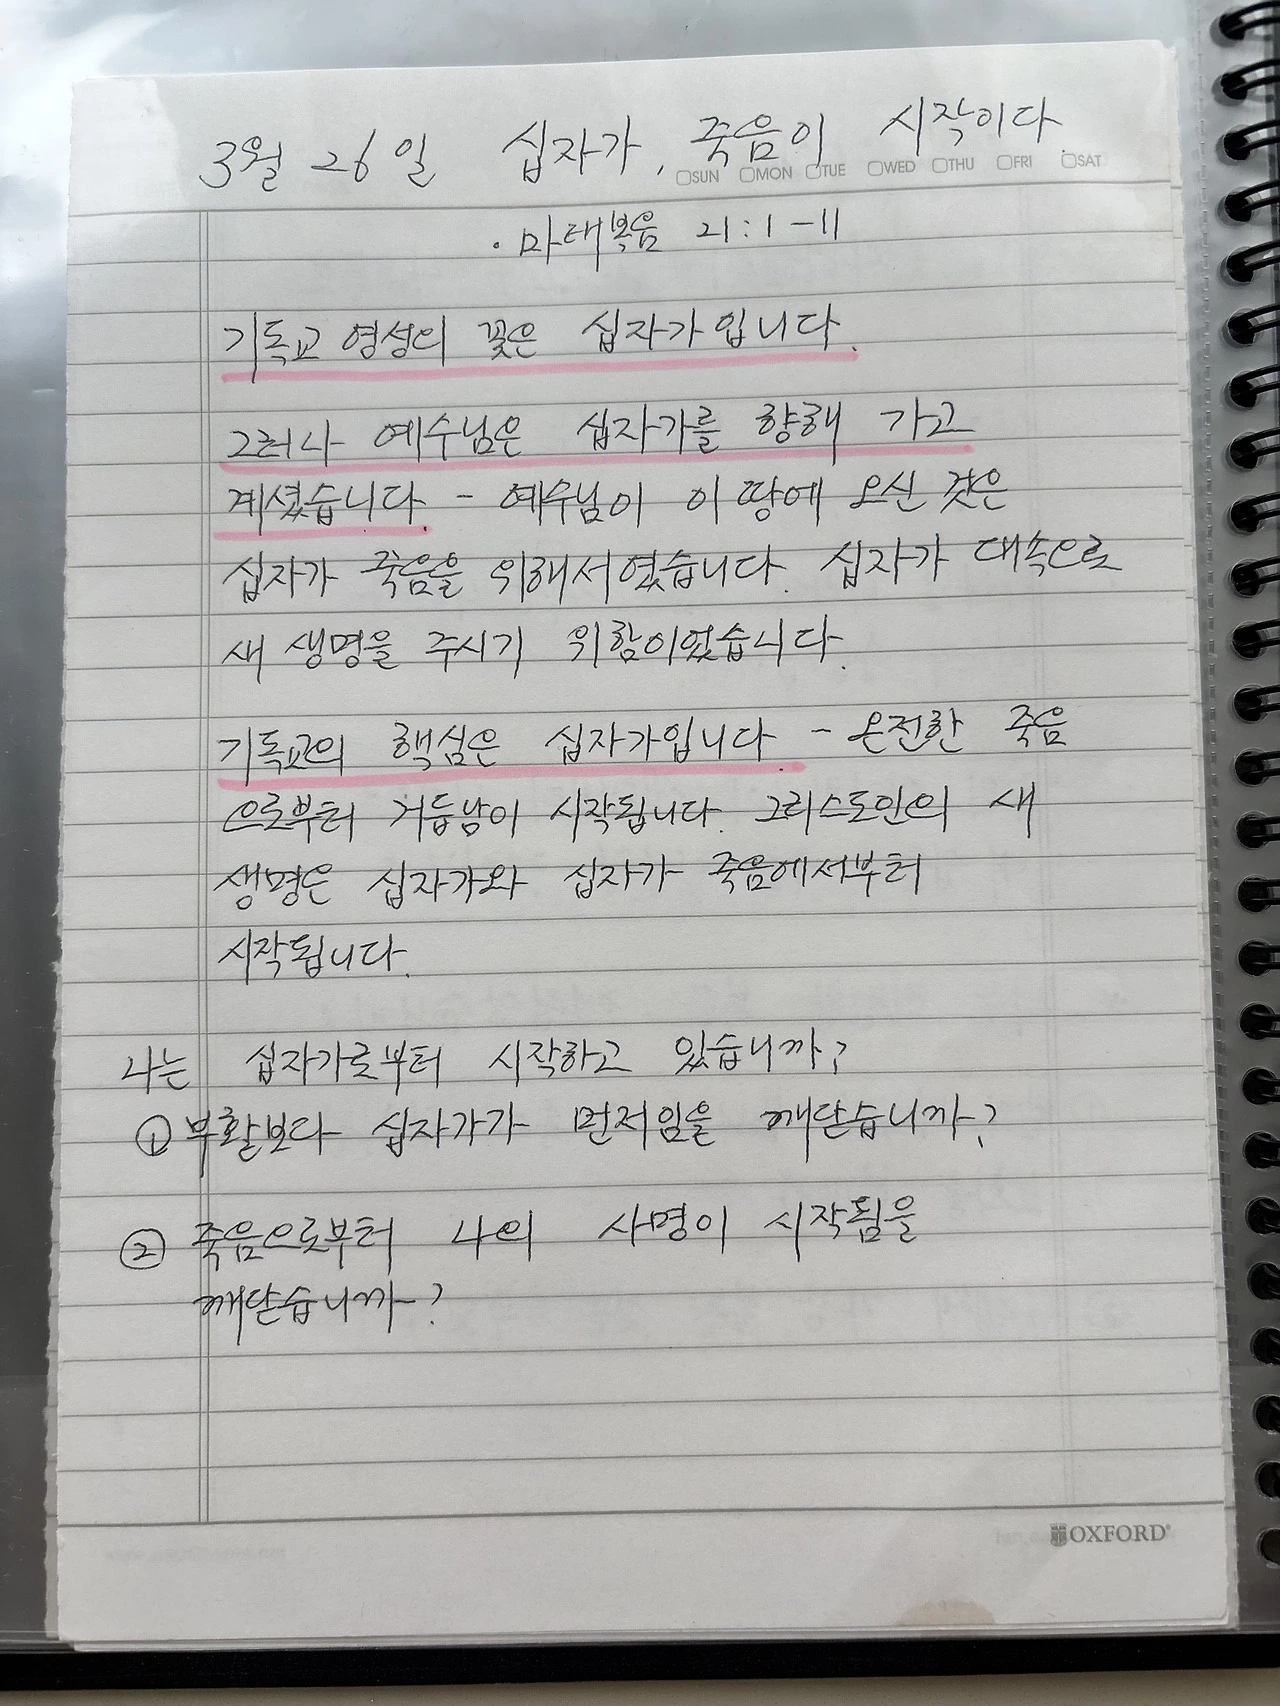 3월 26일 십자가, 죽음이 시작이다.
SUN MON TUE WED THU FRI SAT
· 마태복음 21:1-11
기독교 영성의 꽃은 십자가입니다.
그러나 예수님은 십자가를 향해 가고
계셨습니다. - 예수님이 이 땅에 오신 것은
십자가 죽음을 위해서였습니다. 십자가 대속으로
새 생명을 주시기 위함이었습니다.
기독교의 핵심은 십자가입니다. - 온전한 죽음
으로부터 거듭남이 시작됩니다. 그리스도인의 새
생명은 십자가와 십자가 죽음에서부터
시작됩니다.
나는 십자가로부터 시작하고 있습니까?
① 부활보다 십자가가 먼저임을 깨닫습니까?
② 죽음으로부터 나의 사명이 시작됨을
깨닫습니까?
OXFORD